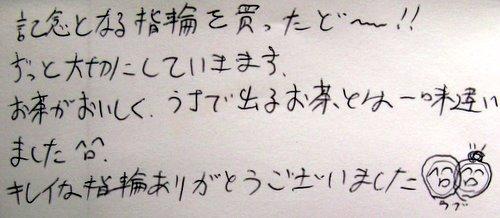 記念となる指輪を買ったど〜!!
ずっと大切にしていきます。
お茶がおいしく、うちで出るお茶とは一味違い
ました^^
キレイな指輪ありがとうございました
ラブ